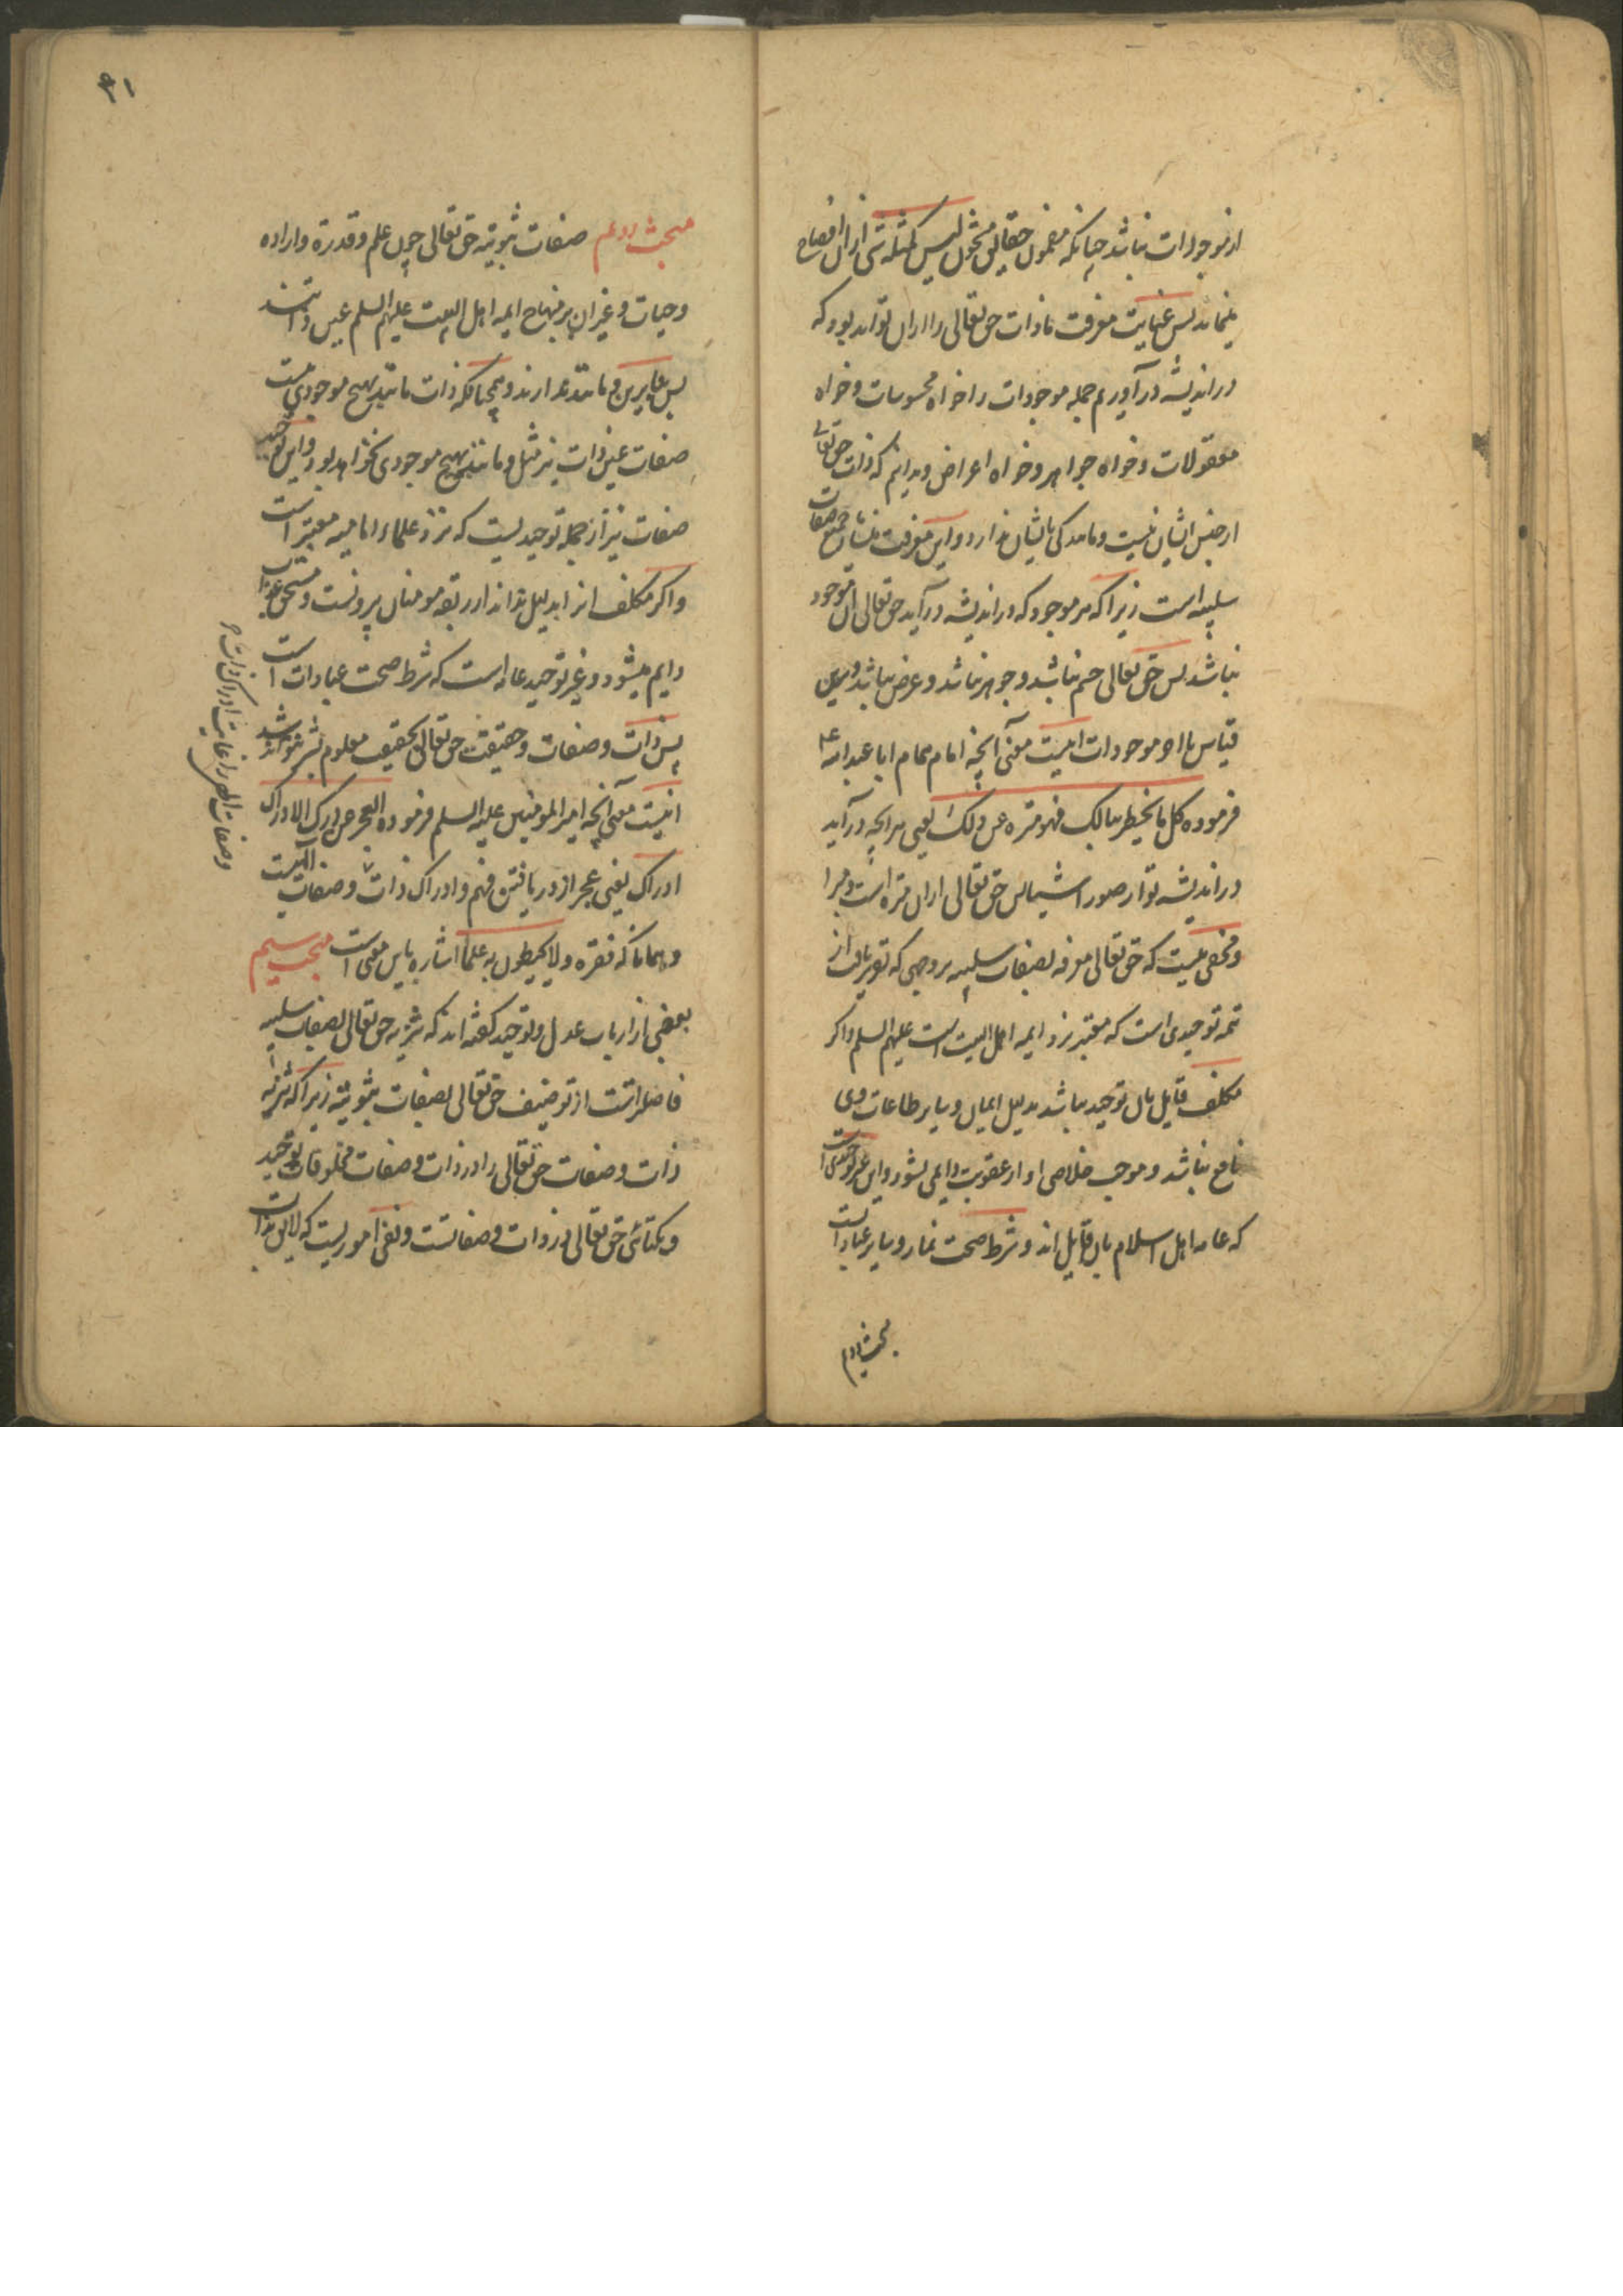 از موجودات نباشد چنانکه مضمون حقایق مشحون لیس کمثله شی ازان افصاح
مینماید پس غایت معرفت ما ذات حق تعالی را ازان تواند بود که
در اندیشه در آوریم جمله موجودات را خواه محسوسات و خواه
معقولات و خواه جواهر و خواه اعراض و بدانیم که ذات حق تعالی
از جنس ایشان نیست و مانندکی بایشان ندارد و این معرفت جمیع صفات
سلبیه است زیرا که هر موجود که در اندیشه در آید حق تعالی آن موجود
نباشد پس حق تعالی جسم نباشد و جوهر نباشد و عرض نباشد و برین
قیاس موجودات اینست معنی آنچه امام همام ابا عبدالله ع
فرموده کل ما یخطر ببالک فهو منزه عن ذلک یعنی هر آنچه در آید
در اندیشه تو از صور اشیا پس حق تعالی ازان منزه است و مبرا
و مخفی نیست که حق تعالی بصفات سلبیه بر وجهی که تقریر یافت از
تتمه توحیدی است که معتبر نزد ایمه اهل البیت است علیهم السلم و اکر
مکلف قایل بآن توحید نباشد بدلیل ایمان و سایر طاعات وی
نافع نباشد و موجب خلاصی او از عقوبت دایمی نشود و این غیر توحیدی است
که عامه اهل اسلام بآن قایل اند و شرط صحت نماز و سایر عبادات است
مبحث دویم
۳۱
مبحث دویم صفات ثبوتیه حق تعالی چون علم و قدرة و اراده
و حیات و غیر آن بر منهاج ایمه اهل البیت علیهم السلم عین ذاتند
پس مانند ندارند و همچنانکه ذات مانند هیچ موجودی نیست
صفات عین ذات نیز مثل و مانند هیچ موجودی نخواهد بود و این توحید
صفات نیز از جمله توحیدیست که نزد علماء امامیه معتبر است
و اکر مکلف آنرا بدلیل نداند از ربقه مومنان بیرونست و مستحق عذاب
دایم میشود و غیر توحید عامه است که شرط صحت عبادات است
پس ذات و صفات و حقیقت حق تعالی بتحقیق معلوم بشر نتواند شد
اینست معنی آنچه امیر المومنین علیه السلم فرموده العجز عن درک الادراک
ادراک یعنی عجز از دریافتن فهم و ادراک ذات و صفات الهیست
و همانا که فقره و لا یحیطون به علما اشاره باین معنی است مبحث سیم
بعضی از ارباب عدل و توحید کفته اند که تنزیه حق تعالی بصفات سلبیه
فاضلتر است از توصیف حق تعالی بصفات ثبوتیه زیرا که تنزیه
ذات و صفات حق تعالی را از ذات و صفات مخلوقات توحید
و یکتائی حق تعالی در ذات و صفاتست و نفی اموریست که لایق بذات
و صفات الهی را غایت ادراک ذات